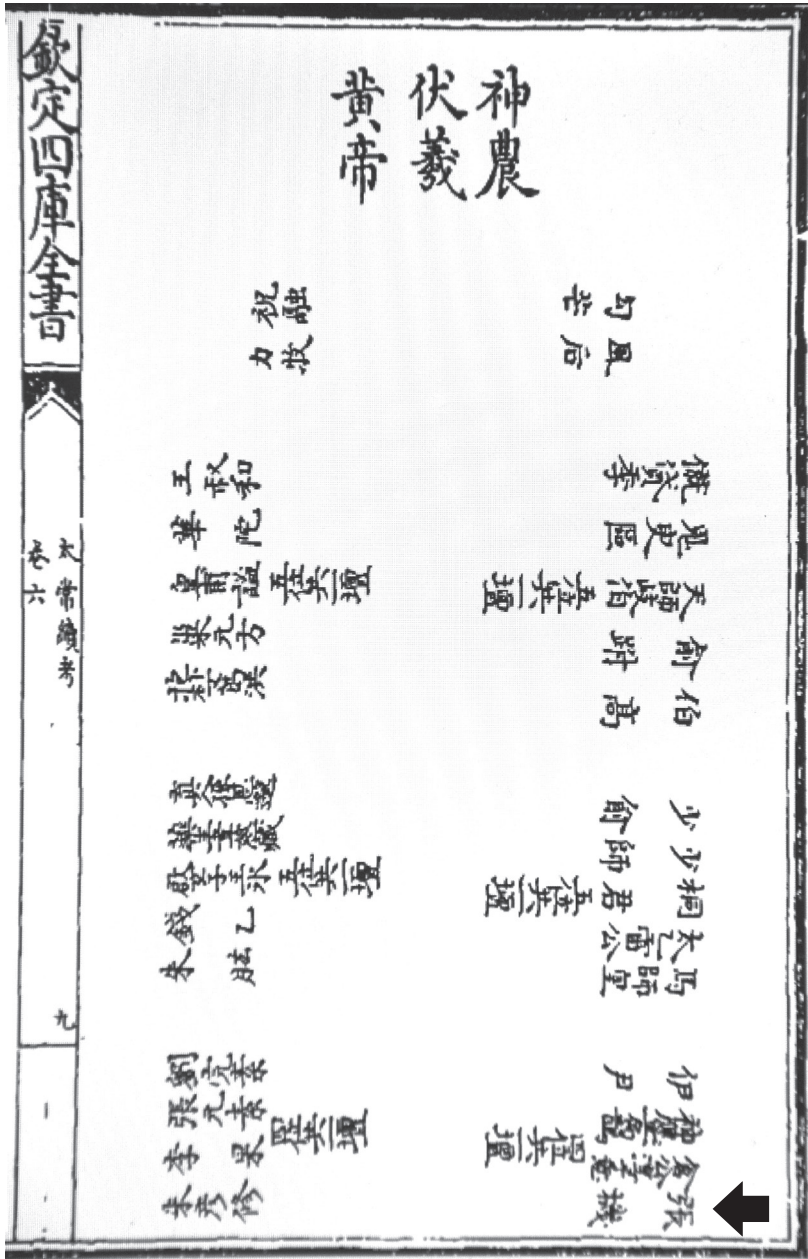 欽定四庫全書
太常續考
卷六
九
神農
伏羲
黃帝
勾芒
風后
祝融
力牧
僦貸季
鬼臾區
天師岐伯
俞跗
伯高
五位共一壇
少俞
少師
桐君
太乙雷公
馬師皇
五位共一壇
伊尹
神應王扁鵲
倉公淳于意
張機
四位共一壇
王叔和
華陀
皇甫謐
巢元方
抱朴葛洪
五位共一壇
真人孫思邈
藥王韋慈藏
啟玄子王氷
錢乙
朱肱
五位共一壇
劉完素
張元素
李果
朱彦修
四位共一壇